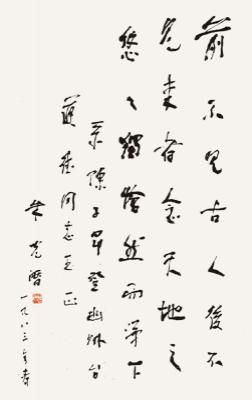 前不見古人後不
見来者念天地之
悠々獨愴然而涕下
录陳子昂登幽州台
同志
朱光潛
一九八三年春